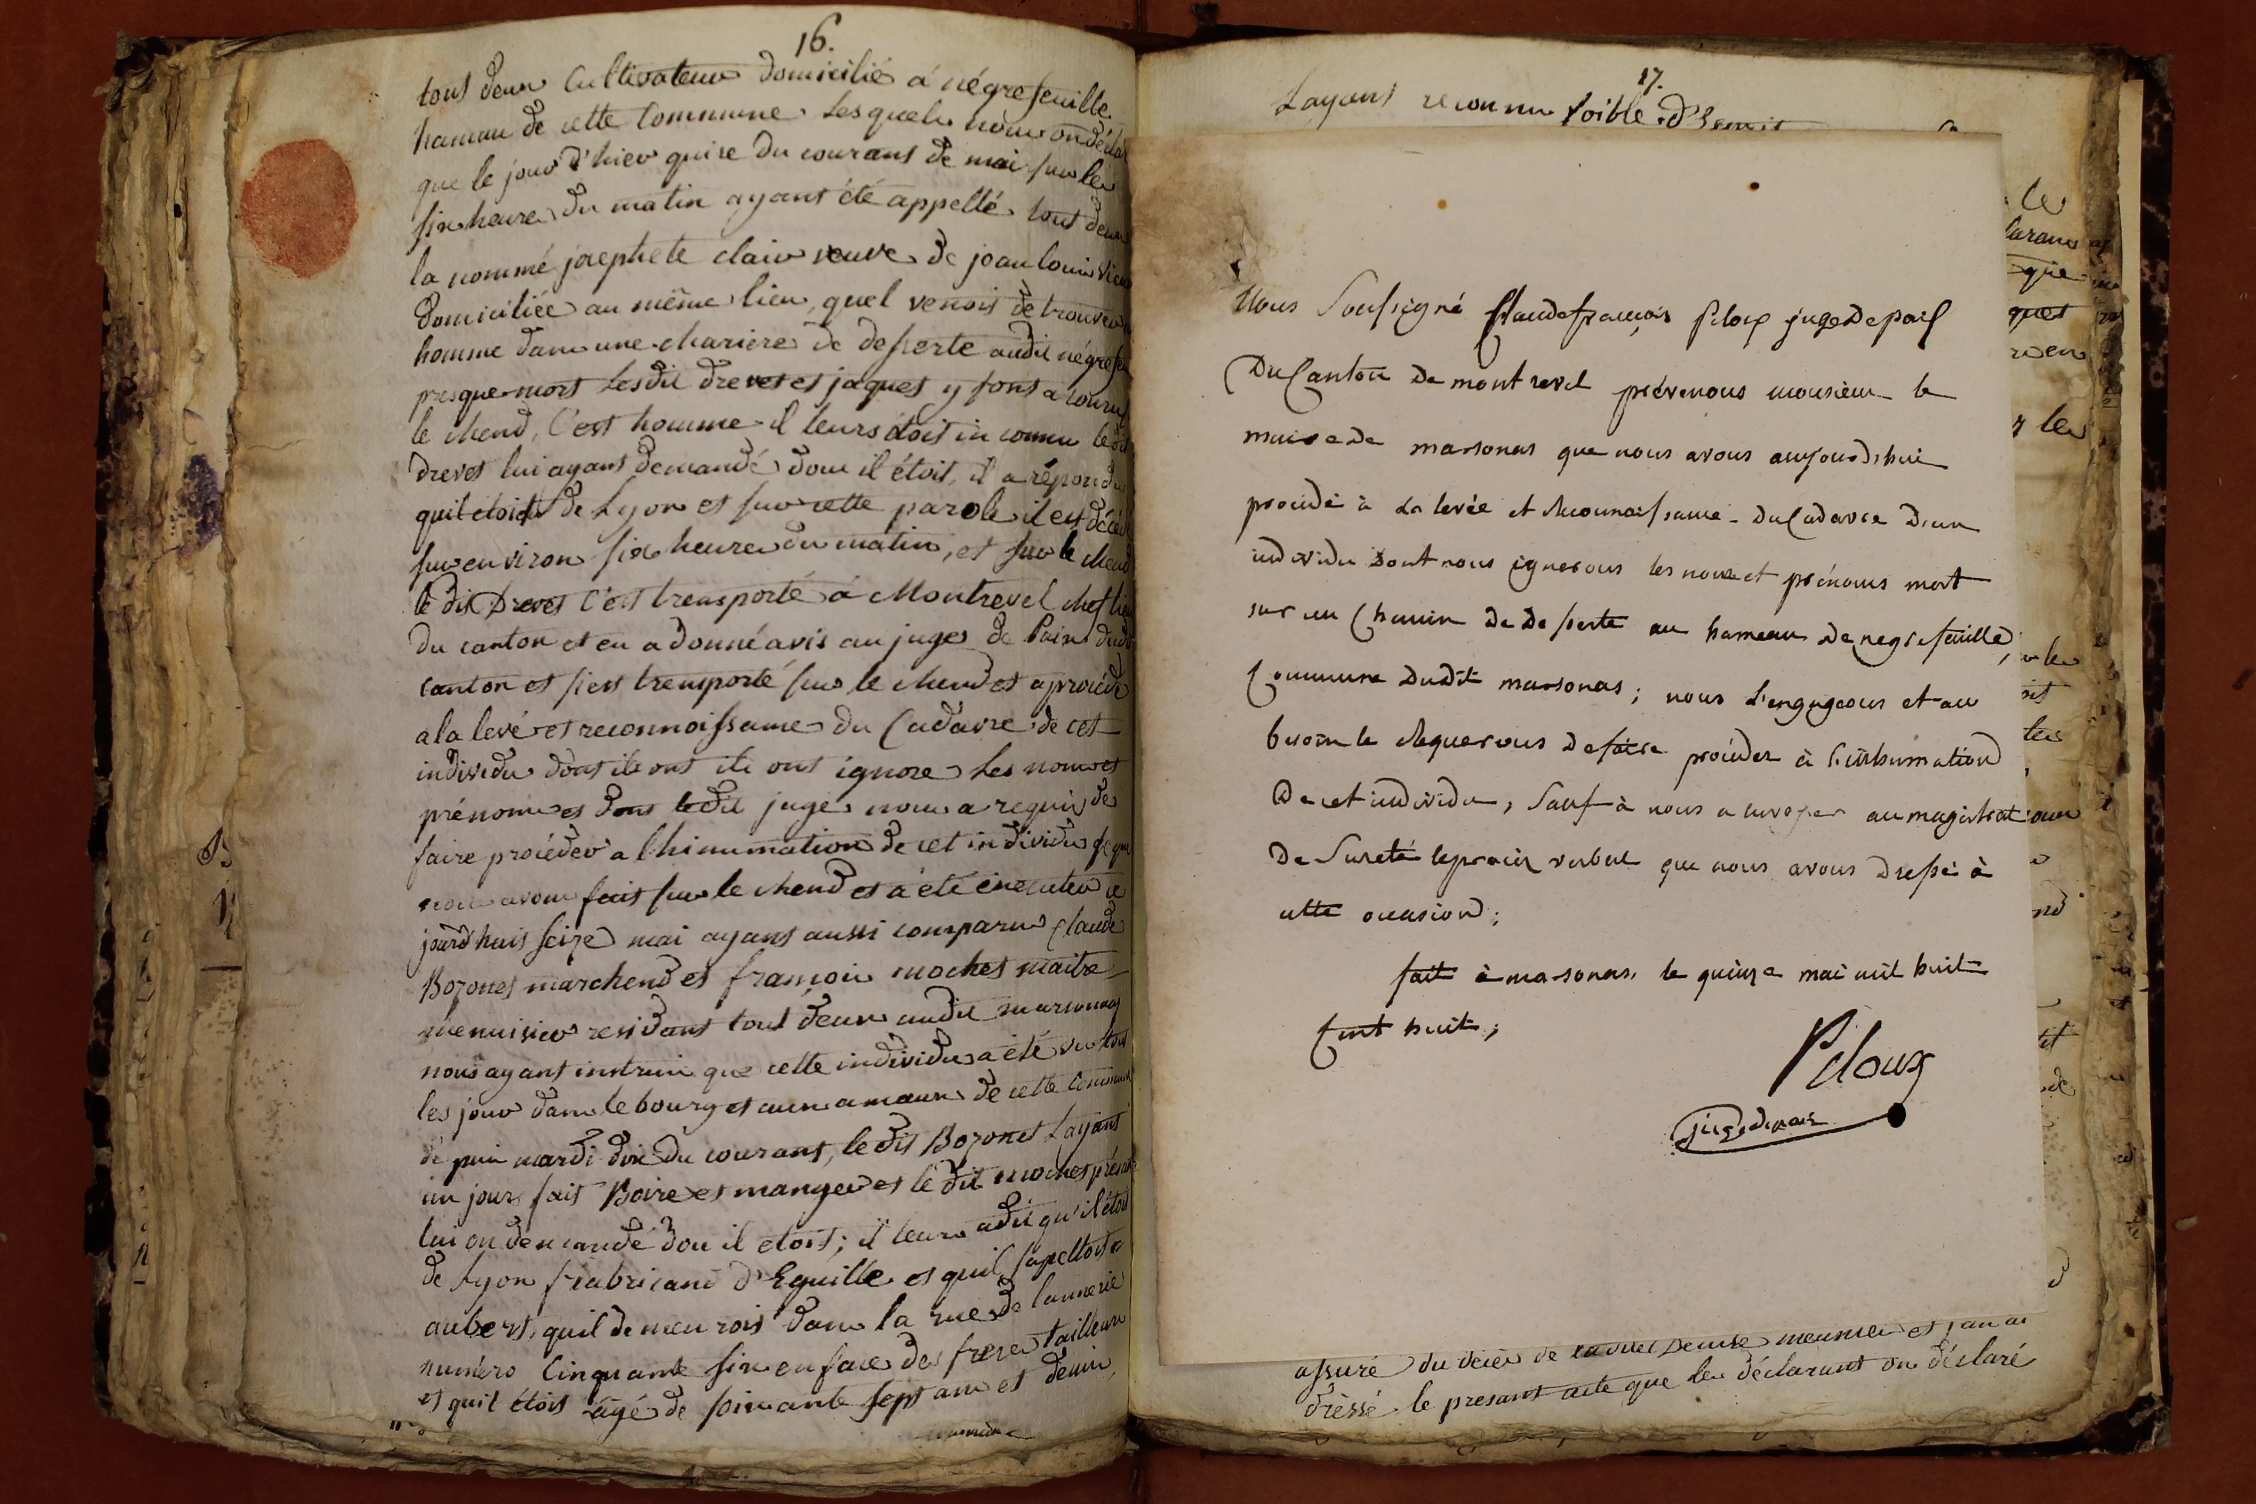 16.
tous deux Cultivateur domicilié a négrefeuille
hameau de cette Commune. Lesquels nous on déclar
que le jour d'hier quise du courant de mai sur les
six heures du matin ayant été appellé tous deux
la nommé josephete clair veuve de jean louis
domiciliée au même lieu, quel venois de trouver
homme dans une chariere de deserte audit négrefeu
presque mort Lesdit drevet et jaques y sont a couru
le chend, C'est homme il leurs étoit in connu le dit
drevet lui ayant demandé dou il étoit, il a répondu
quil etoit de Lyon et sur cette parole il est décéd
sur environ six heures du matin, et sur le chend
le dit Drevet C'est transporté a Montrevel chef lieu
du canton et en a donné avis au juge de Paix dudit
canton et s'est transporté sur le chend et a procédé
a la levé et reconnoissance du Cadavre de cet
individu dont ils ont ils ont ignore les nom et
prénom et dont ledit juge nous a requis de
faire procéder a l'hinumation de cet individu ce que
nous avons fait sur le chend et a été executer ce
jourd'huis seize mai ayant aussi comparu Claude
Bozonet marchend et françois mochet maitre
menuisier residant tout deux audit marsonnas
nous ayant instruit que cette individu a été vu tout
les jour dans le bourg et aux amaux de cette Commune
de puis mardi dix du courant, le dit Bozonet Layant
un jour fait Boire et manger et le dit mochet présent
lui on demandé dou il etoit; il leurs a dit qu'il étoit
de Lyon fabricand d'Eguille et quil sapelloit
aubert, quil demeurois dans la rue de lannerie
numéro Cinquante six en face des frere tailleur
et quil étois agé de soixante sept ans et demin,
17.
Layant reconnu foible d'
Nous Soussigné Claude françois Peloux juge de paix
Du Canton de montrevel prévenons monsieur le
maire de marsonas que nous avons aujourd'hui
procédé à la levée et Reconnaissance Du Cadavre d'un
individu dont nous ignorons les nom et prénoms mort
sur un Chemin De Desserte au hameau de negrefeuille,
Commune Dudit marsonas; nous L'engageons et au
besoin le Requerons de faire procéder à l'inhumation
De cet individu, Sauf à nous a envoyer au magistrat
De Sureté le procès verbal que nous avons dressé à
cette occasion;
fait à marsonas, le quinze mai mil huit
Cent huit;
Peloux
juge de paix
assuré du décès de Denise meunier et j'an ai
dressé le presant acte que les déclarant on déclaré